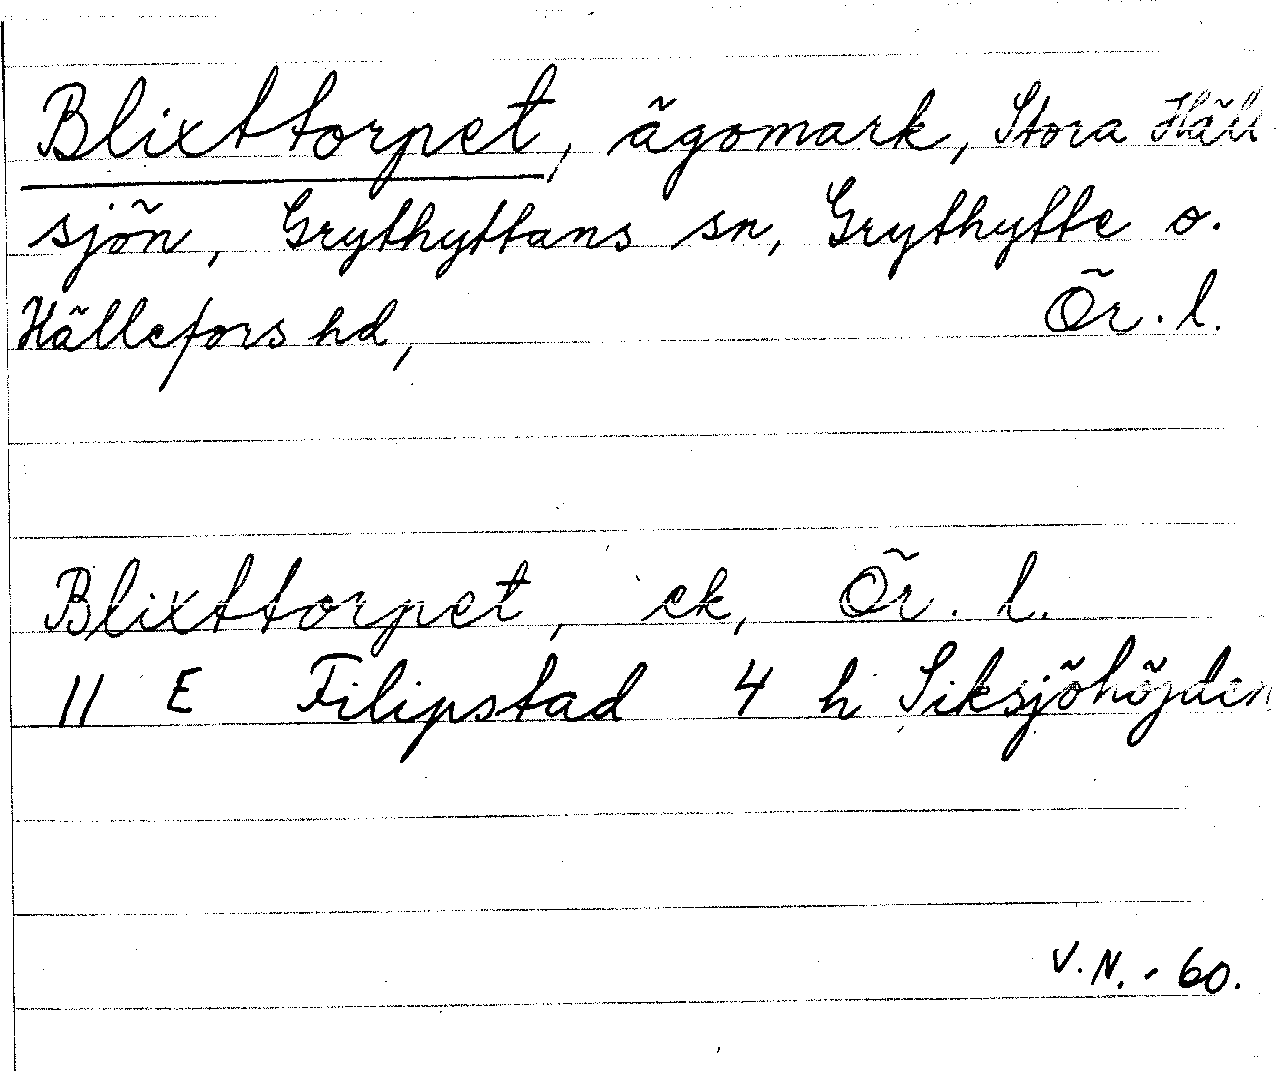 Blixttorpet, ägomark, Stora Häll-
sjön, Grythyttans sn, Grythytte o.
Hällefors hd, Ör. l.
Blixttorpet, ek, Ör. l.
11 E Filipstad 4 h Siksjöhöjden
V.N. - 60.